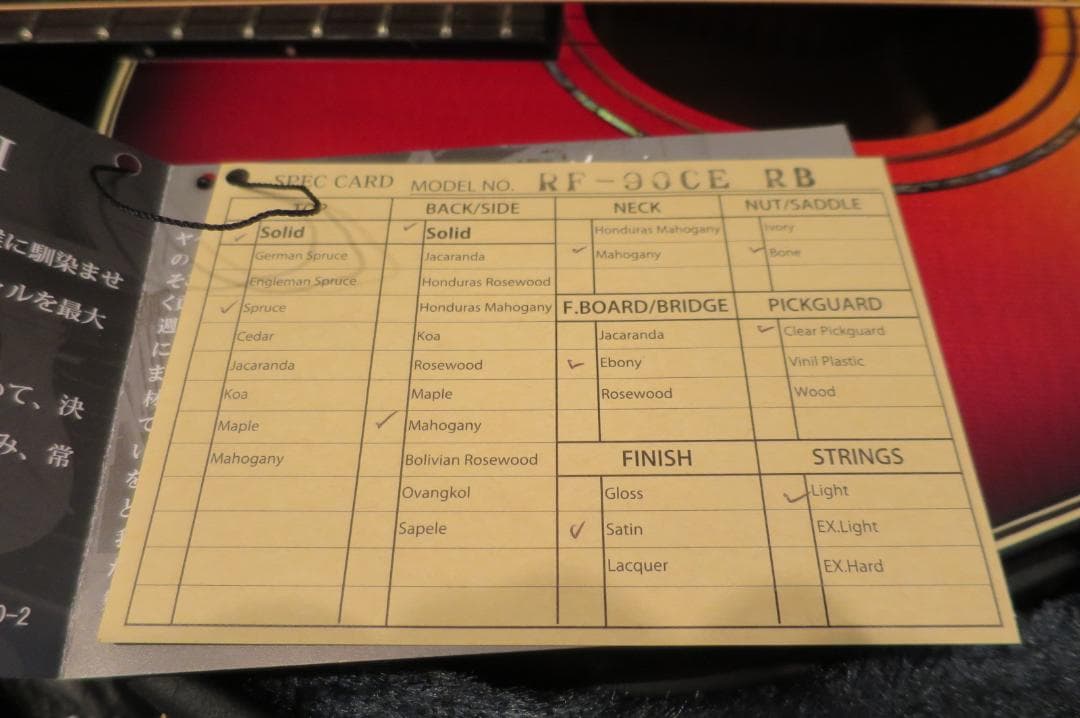 SPEC CARD MODEL NO. RF-90CE RB
TOP
✓ Solid
German Spruce
Engleman Spruce
✓ Spruce
Cedar
Jacaranda
Koa
Maple
Mahogany
BACK/SIDE
✓ Solid
Jacaranda
Honduras Rosewood
Honduras Mahogany
Koa
Rosewood
Maple
✓ Mahogany
Bolivian Rosewood
Ovangkol
Sapele
NECK
Honduras Mahogany
✓ Mahogany
F.BOARD/BRIDGE
Jacaranda
✓ Ebony
Rosewood
FINISH
Gloss
✓ Satin
Lacquer
NUT/SADDLE
Ivory
✓ Bone
PICKGUARD
✓ Clear Pickguard
Vinil Plastic
Wood
STRINGS
✓ Light
EX.Light
EX.Hard
に馴染ませ
ルを最大
て、決
み、常